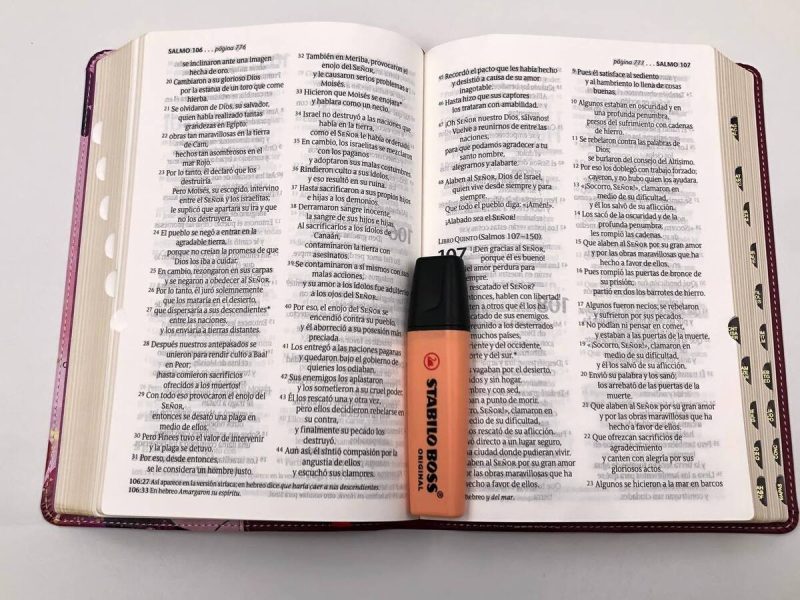 SALMO 106 . . . página 776
se inclinaron ante una imagen
hecha de oro.
20 Cambiaron a su glorioso Dios
por la estatua de un toro que come
hierba.
21 Se olvidaron de Dios, su salvador,
quien había realizado tantas
grandezas en Egipto:
22 obras tan maravillosas en la tierra
de Cam,
hechos tan asombrosos en el
mar Rojo.
23 Por lo tanto, él declaró que los
destruiría.
Pero Moisés, su escogido, intervino
entre el SEÑOR y los israelitas;
le suplicó que apartara su ira y que
no los destruyera.
24 El pueblo se negó a entrar en la
agradable tierra,
porque no creían la promesa de que
Dios los iba a cuidar.
25 En cambio, rezongaron en sus carpas
y se negaron a obedecer al SEÑOR.
26 Por lo tanto, él juró solemnemente
que los mataría en el desierto,
27 que dispersaría a sus descendientes*
entre las naciones,
y los enviaría a tierras distantes.
28 Después nuestros antepasados se
unieron para rendir culto a Baal
en Peor;
¡hasta comieron sacrificios
ofrecidos a los muertos!
29 Con todo eso provocaron el enojo del
SEÑOR,
entonces se desató una plaga en
medio de ellos.
30 Pero Finees tuvo el valor de intervenir
y la plaga se detuvo.
31 Por eso, desde entonces,
se le considera un hombre justo.
32 También en Meriba, provocaron el
enojo del SEÑOR,
y le causaron serios problemas a
Moisés.
33 Hicieron que Moisés se enojara*
y hablara como un necio.
34 Israel no destruyó a las naciones que
había en la tierra,
como el SEÑOR le había ordenado.
35 En cambio, los israelitas se mezclaron
con los paganos
y adoptaron sus malas costumbres.
36 Rindieron culto a sus ídolos,
y eso resultó en su ruina.
37 Hasta sacrificaron a sus propios hijos
e hijas a los demonios.
38 Derramaron sangre inocente,
la sangre de sus hijos e hijas.
Al sacrificarlos a los ídolos de
Canaán,
contaminaron la tierra con
asesinatos.
39 Se contaminaron a sí mismos con sus
malas acciones,
y su amor a los ídolos fue adulterio
a los ojos del SEÑOR.
40 Por eso, el enojo del SEÑOR se
encendió contra su pueblo,
y él aborreció a su posesión más
preciada.
41 Los entregó a las naciones paganas
y quedaron bajo el gobierno de
quienes los odiaban.
42 Sus enemigos los aplastaron
y los sometieron a su cruel poder.
43 Él los rescató una y otra vez,
pero ellos decidieron rebelarse en
su contra,
y finalmente su pecado los
destruyó.
44 Aun así, él sintió compasión por la
angustia de ellos
y escuchó sus clamores.
106:27 Así aparece en la versión siríaca; en hebreo dice que haría caer a sus descendientes.
106:33 En hebreo Amargaron su espíritu.
página 777 . . . SALMO 107
45 Recordó el pacto que les había hecho
y desistió a causa de su amor
inagotable.
46 Hasta hizo que sus captores
los trataran con amabilidad.
47 ¡Oh SEÑOR nuestro Dios, sálvanos!
Vuelve a reunirnos de entre las
naciones,
para que podamos agradecer a tu
santo nombre,
alegrarnos y alabarte.
48 Alaben al SEÑOR, Dios de Israel,
quien vive desde siempre y para
siempre.
Que todo el pueblo diga: «¡Amén!».
¡Alabado sea el SEÑOR!
LIBRO QUINTO (Salmos 107–150)
107 ¡Den gracias al SEÑOR,
porque él es bueno!
el amor perdura para
siempre.
rescatado el SEÑOR?
ntonces, hablen con libertad!
de sus enemigos.
reunido a los desterrados
muchos países,
ente y del occidente,
orte y del sur.*
vagaban por el desierto,
dos y sin hogar.
n sed, y casi
an a punto de morir.
», SEÑOR!», clamaron en
medio de su dificultad,
s rescató de su aflicción.
directo a un lugar seguro,
ciudad donde pudieran vivir.
al SEÑOR por su gran amor
s obras maravillosas que ha
hecho a favor de ellos.
hebreo y del mar.
9 Pues él satisface al sediento
y al hambriento lo llena de cosas
buenas.
10 Algunos estaban en oscuridad y en
una profunda penumbra,
presos del sufrimiento con cadenas
de hierro.
11 Se rebelaron contra las palabras de
Dios;
se burlaron del consejo del Altísimo.
12 Por eso los doblegó con trabajo forzado;
cayeron, y no hubo quien los ayudara.
13 «¡Socorro, SEÑOR!», clamaron en
medio de su dificultad,
y él los salvó de su aflicción.
14 Los sacó de la oscuridad y de la
profunda penumbra;
les rompió las cadenas.
15 Que alaben al SEÑOR por su gran amor
y por las obras maravillosas que ha
hecho a favor de ellos.
16 Pues rompió las puertas de bronce de
su prisión;
partió en dos los barrotes de hierro.
17 Algunos fueron necios; se rebelaron
y sufrieron por sus pecados.
18 No podían ni pensar en comer,
y estaban a las puertas de la muerte.
19 «¡Socorro, SEÑOR!», clamaron en
medio de su dificultad,
y él los salvó de su aflicción.
20 Envió su palabra y los sanó;
los arrebató de las puertas de la
muerte.
21 Que alaben al SEÑOR por su gran amor
y por las obras maravillosas que ha
hecho a favor de ellos.
22 Que ofrezcan sacrificios de
agradecimiento
y canten con alegría por sus
gloriosos actos.
23 Algunos se hicieron a la mar en barcos
STABILO BOSS®
ORIGINAL